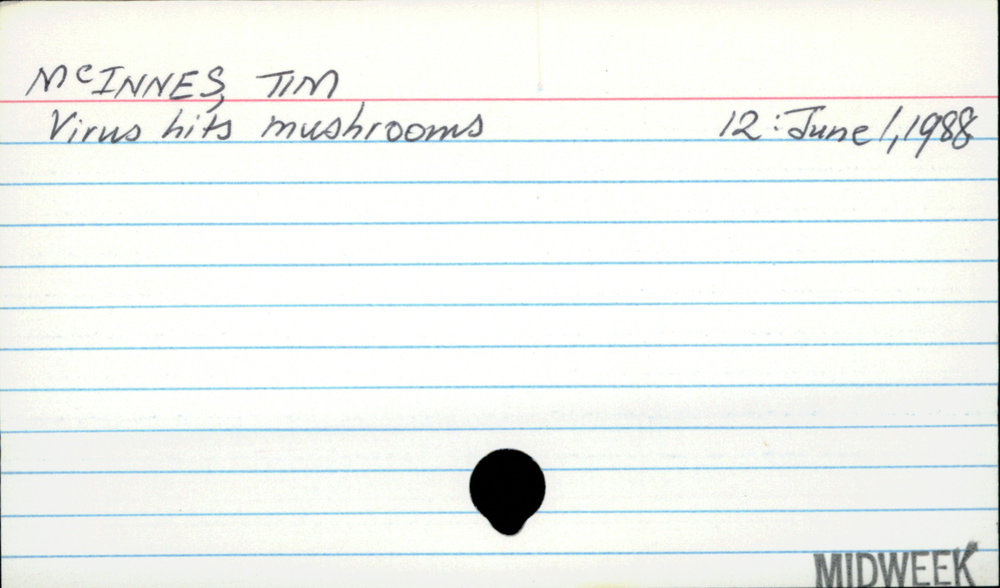 McINNES, TIM
Virus hits mushrooms 12: June 1, 1988
MIDWEEK